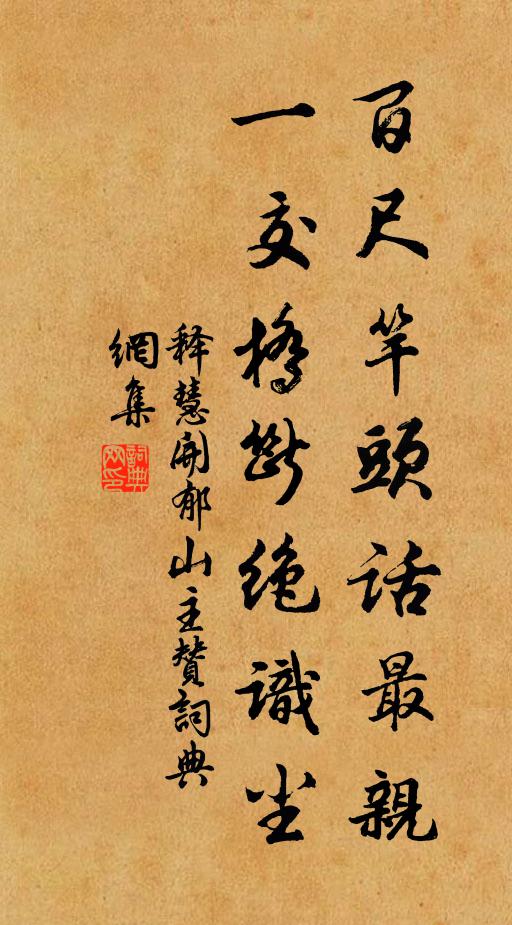 百尺竿頭話最親
一交橋斷絶識尘
释慧開郁山主贊詞典
網集
詞典網印